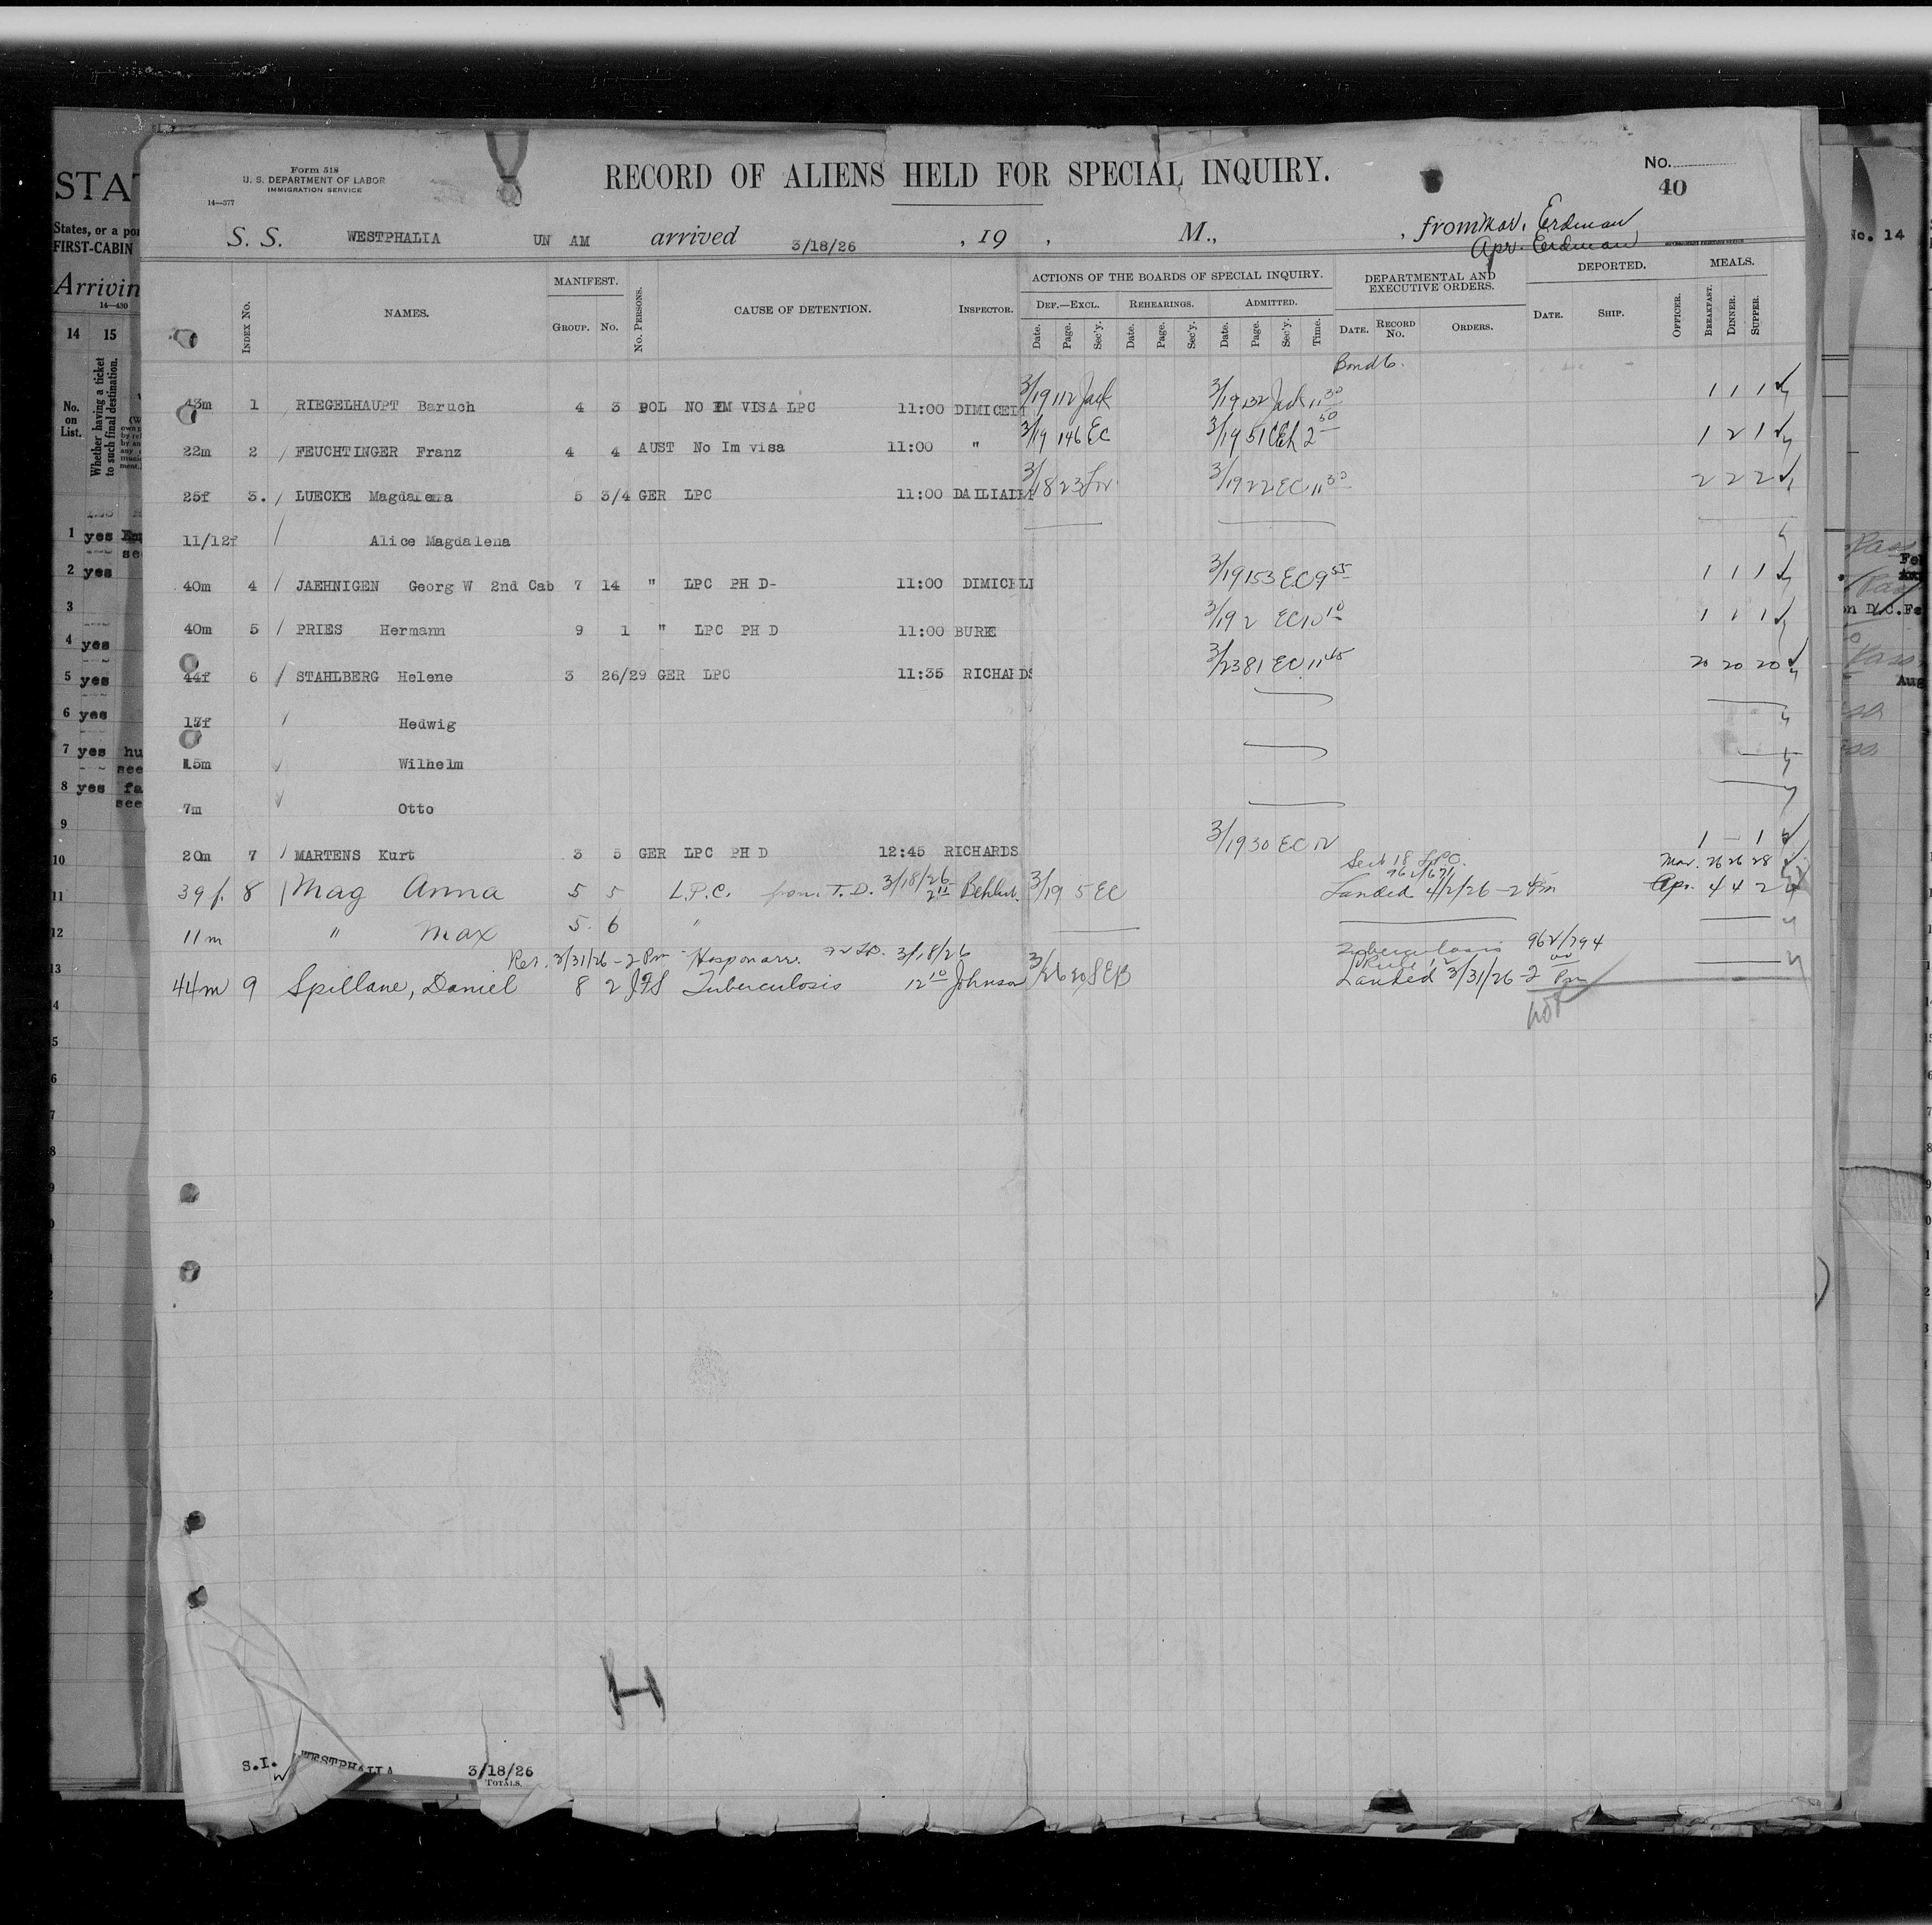 Form 518
U. S. DEPARTMENT OF LABOR
IMMIGRATION SERVICE
14—377
RECORD OF ALIENS HELD FOR SPECIAL INQUIRY.
No.
40
S. S. WESTPHALIA UN AM arrived 3/18/26 , 19 , M., , from Mar. Erdman
Apr. Erdman
INDEX No. NAMES. MANIFEST. GROUP. No. No. PERSONS. CAUSE OF DETENTION. INSPECTOR. ACTIONS OF THE BOARDS OF SPECIAL INQUIRY. DEPARTMENTAL AND EXECUTIVE ORDERS. DEPORTED. MEALS.
DEF.—EXCL. REHEARINGS. ADMITTED. DATE. RECORD No. ORDERS. DATE. SHIP. OFFICER. BREAKFAST. DINNER. SUPPER.
Date. Page. Sec'y. Date. Page. Sec'y. Date. Page. Sec'y. Time.
Bond
43m 1 / RIEGELHAUPT Baruch 4 3 POL NO IM VISA LPC 11:00 DIMICELI 3/19 112 Jack 3/19 132 Jack 11 30 1 1 1
22m 2 / FEUCHTINGER Franz 4 4 AUST No Im visa 11:00 " 3/19 146 EC 3/19 51 2 50 1 2 1
25f 3. / LUECKE Magdalena 5 3/4 GER LPC 11:00 3/18 23 3/19 22 EC 11 30 2 2 2
11/12f / Alice Magdalena
40m 4 / JAEHNIGEN Georg W 2nd Cab 7 14 " LPC PH D- 11:00 DIMICELI 3/19 153 EC 9 55 1 1 1
40m 5 / PRIES Hermann 9 1 " LPC PH D 11:00 BURKE 3/19 2 EC 10 10 1 1 1
44f 6 / STAHLBERG Helene 3 26/29 GER LPC 11:35 RICHARDS 3/23 81 EC 11 45 20 20 20
17f / Hedwig
15m / Wilhelm
7m / Otto
20m 7 / MARTENS Kurt 3 5 GER LPC PH D 12:45 RICHARDS 3/19 30 EC 12 1 — 1
Sect 18 LPC. Mar. 26 26 28
962/671
39 f. 8 / Mag Anna 5 5 L.P.C. from T.D. 3/18/26 2 11 3/19 5 EC Landed 4/2/26 - 2 Pm Apr. 4 4 2
11 m " Max 5 6 "
Rec. 3/31/26 - 2 Pm Hosp on arr. 3/18/26 Tuberculosis 962/794
Rule 12
44m 9 Spillane, Daniel 8 2 Tuberculosis 12 10 Johnson 3/26 Landed 3/31/26 - 2 00 Pm
H
S.I. WESTPHALIA 3/18/26
TOTALS.
STA
States, or a por
FIRST-CABIN
Arrivin
14—430
14 15
No. on List.
Whether having a ticket to such final destination.
1 yes
see
2 yes
3
4 yes
5 yes
6 yes
7 yes hu
see
8 yes fa
see
9
10
11
12
13
No. 14
Aug